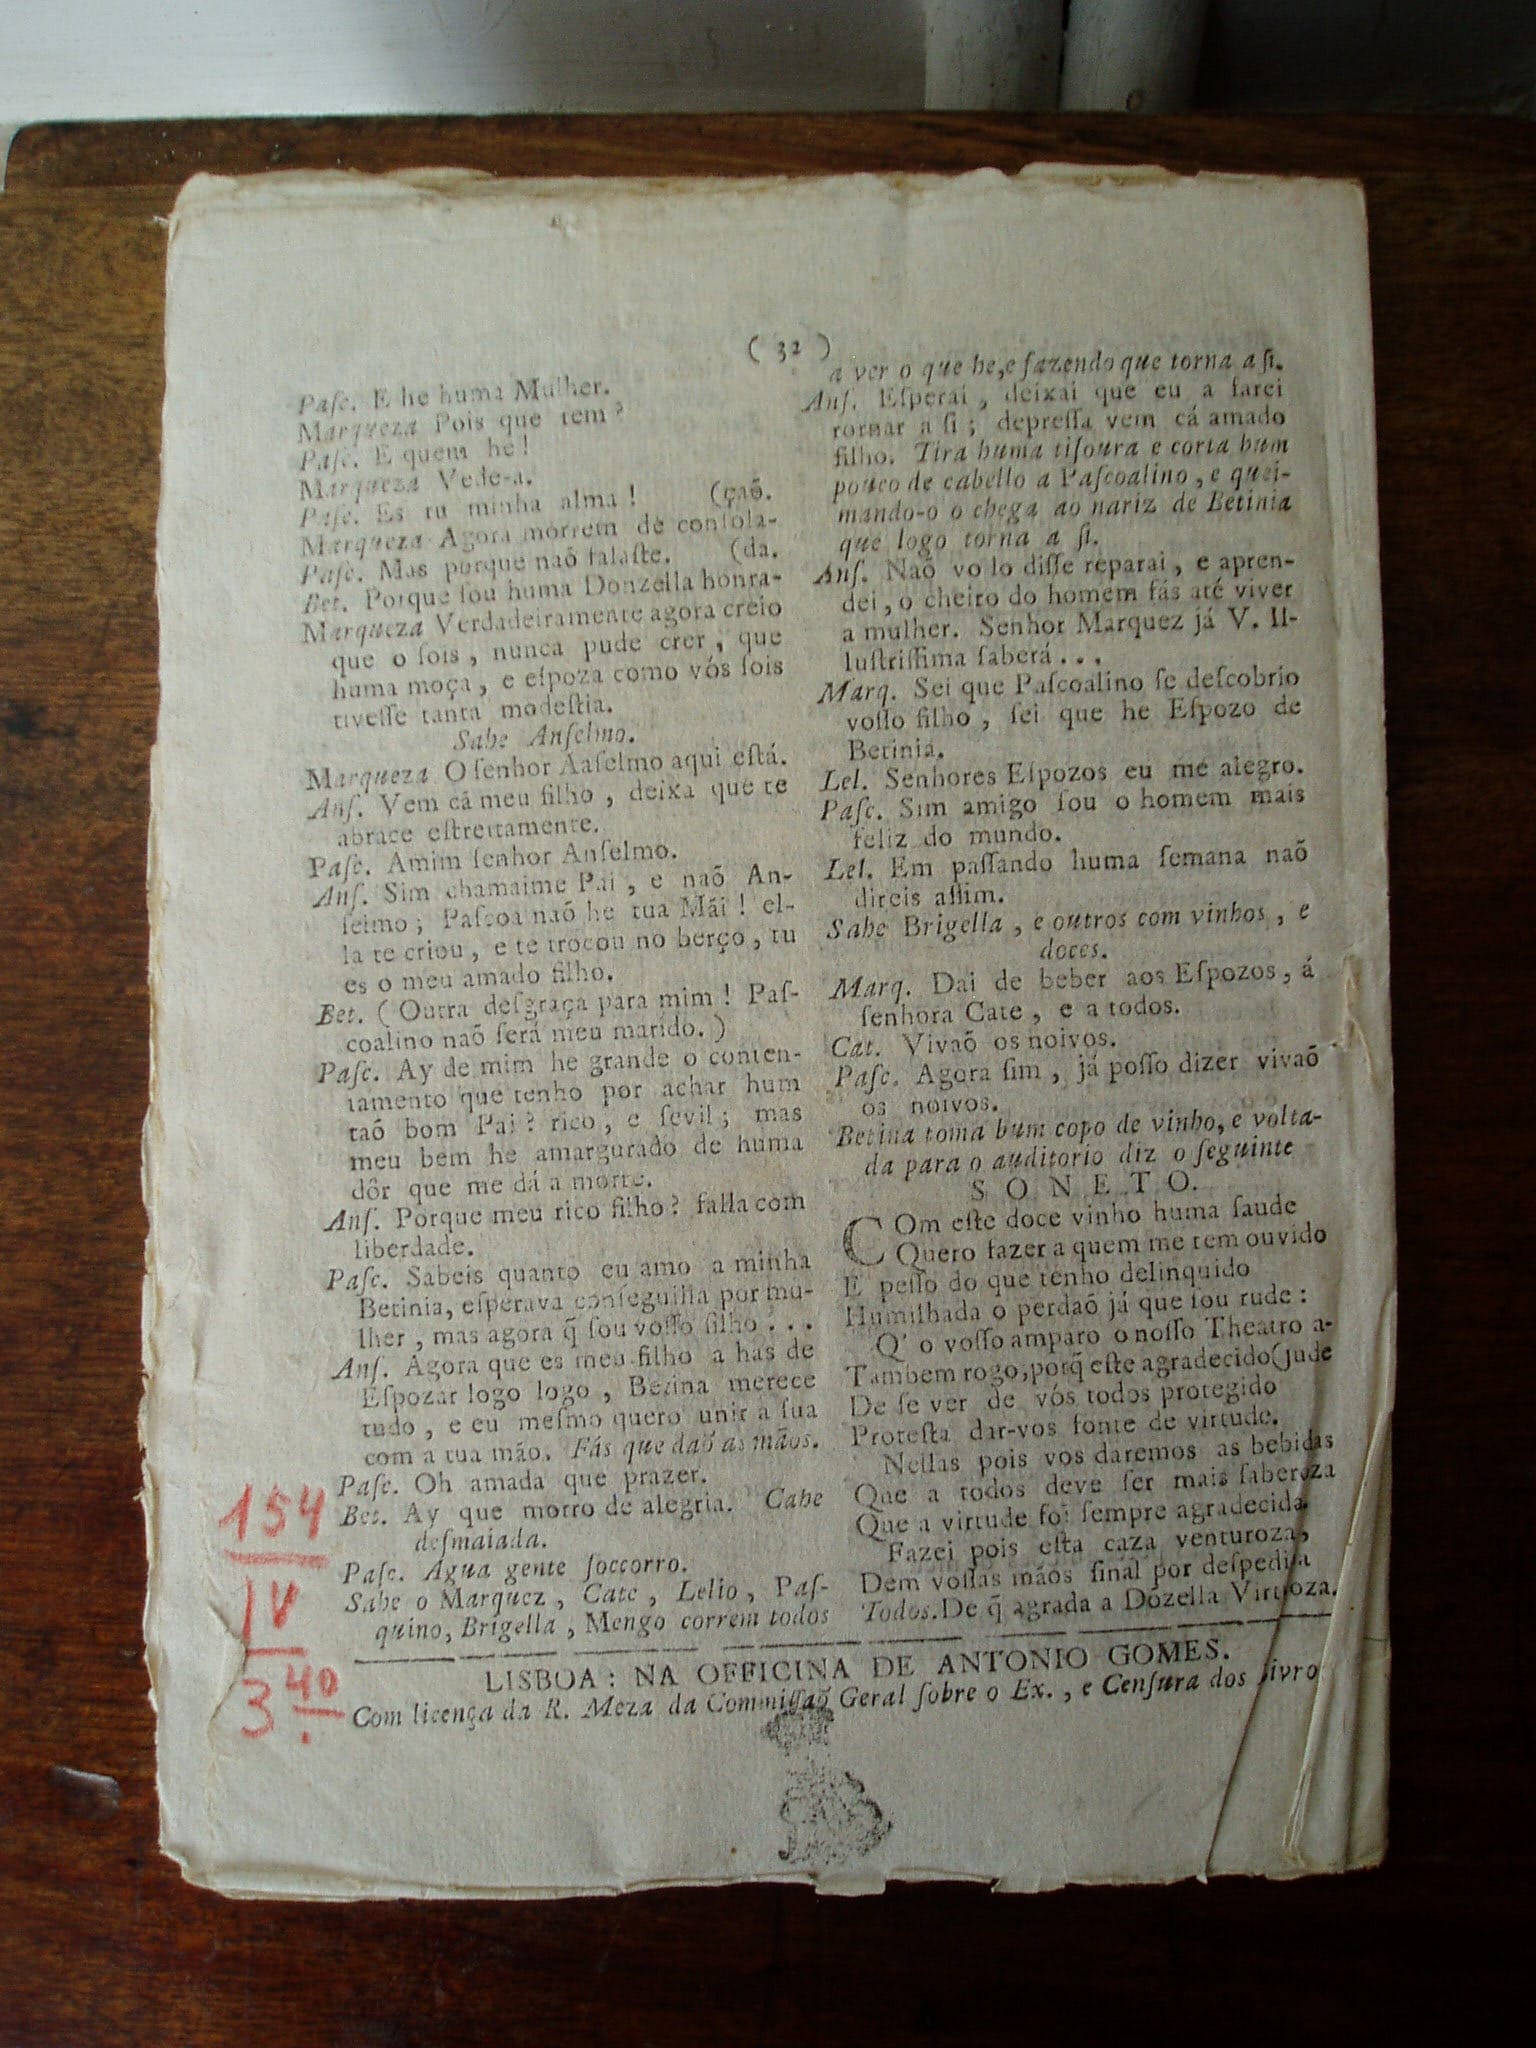 ( 32 )
Paſc. E he huma Mulher.
Marqueza Pois que tem?
Paſc. E quem he!
Marqueza Vede-a.
Paſc. Es tu minha alma! (çaõ.
Marqueza Agora morrem de conſola-
Paſc. Mas porque naõ falaſte. (da.
Bet. Porque ſou huma Donzella honra-
Marqueza Verdadeiramente agora creio
que o ſois, nunca pude crer, que
huma moça, e eſpoza como vós ſois
tiveſſe tanta modeſtia.
Sahe Anſelmo.
Marqueza O ſenhor Aaſelmo aqui eſtá.
Anſ. Vem cá meu filho, deixa que te
abrace eſtreitamente.
Paſc. Amim ſenhor Anſelmo.
Anſ. Sim chamaime Pai, e naõ An-
ſelmo; Paſcoa naõ he tua Mái! el-
la te criou, e te trocou no berço, tu
es o meu amado filho.
Bet. (Outra deſgraça para mim! Paſ-
coalino naõ ſerá meu marido.)
Paſc. Ay de mim he grande o conten-
tamento que tenho por achar hum
taõ bom Pai? rico, e ſevil; mas
meu bem he amargurado de huma
dôr que me dá a morte.
Anſ. Porque meu rico filho? falla com
liberdade.
Paſc. Sabeis quanto eu amo a minha
Betinia, eſperava conſeguilla por mu-
lher, mas agora q̃ ſou voſſo filho...
Anſ. Agora que es meu filho a has de
Eſpozar logo logo, Betina merece
tudo, e eu meſmo quero unir a ſua
com a tua mão. Fás que daõ as mãos.
Paſc. Oh amada que prazer.
Bet. Ay que morro de alegria. Cahe
deſmaiada.
Paſc. Agua gente ſoccorro.
Sahe o Marquez, Cate, Lelio, Paſ-
quino, Brigella, Mengo correm todos
a ver o que he, e fazendo que torna a ſi.
Anſ. Eſperai, deixai que eu a farei
tornar a ſi; depreſſa vem cá amado
filho. Tira huma tiſoura e corta hum
pouco de cabello a Paſcoalino, e quei-
mando-o o chega ao nariz de Betinia
que logo torna a ſi.
Anſ. Naõ vo lo diſſe reparai, e apren-
dei, o cheiro do homem fás até viver
a mulher. Senhor Marquez já V. Il-
luſtriſſima ſaberá...
Marq. Sei que Paſcoalino ſe deſcobrio
voſſo filho, ſei que he Eſpozo de
Betinia.
Lel. Senhores Eſpozos eu me alegro.
Paſc. Sim amigo ſou o homem mais
feliz do mundo.
Lel. Em paſſando huma ſemana naõ
direis aſſim.
Sahe Brigella, e outros com vinhos, e
doces.
Marq. Dai de beber aos Eſpozos, á
ſenhora Cate, e a todos.
Cat. Vivaõ os noivos.
Paſc. Agora ſim, já poſſo dizer vivaõ
os noivos.
Betina toma hum copo de vinho, e volta-
da para o auditorio diz o ſeguinte
SONETO.
COm eſte doce vinho huma ſaude
Quero fazer a quem me tem ouvido
E peſſo do que tenho delinquido
Humilhada o perdaõ já que ſou rude:
Q' o voſſo amparo o noſſo Theatro a-
Tambem rogo, porq̃ eſte agradecido (jude
De ſe ver de vós todos protegido
Proteſta dar-vos fonte de virtude.
Nellas pois vos daremos as bebidas
Que a todos deve ſer mais ſaberoza
Que a virtude foi ſempre agradecida.
Fazei pois eſta caza venturoza,
Dem voſſas mãos final por deſpedida
Todos. De q̃ agrada a Dõzella Virtuoza.
LISBOA: NA OFFICINA DE ANTONIO GOMES.
Com licença da R. Meza da Commiſſaõ Geral ſobre o Ex., e Cenſura dos livro
154
IV
3 40